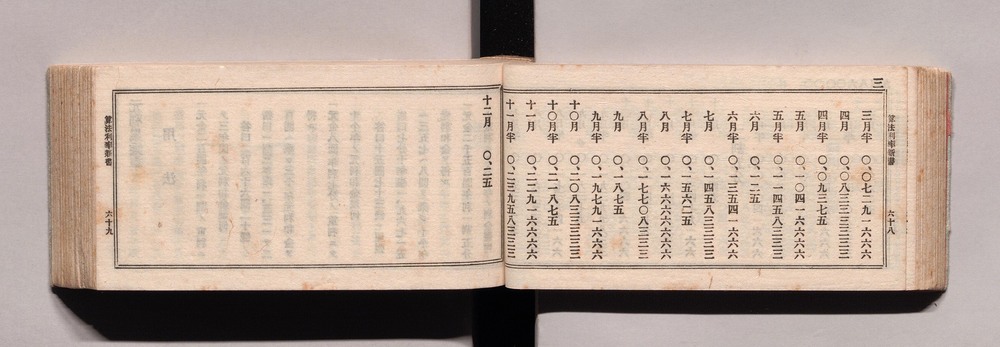 算法利率新書
六十八
三
三月半 〇、〇七二九一六六六
四月 〇、〇八三三三三三三
四月半 〇、〇九三七五
五月 〇、一〇四一六六六六
五月半 〇、一一四五八三三三
六月 〇、一二五
六月半 〇、一三五四一六六六
七月 〇、一四五八三三三三
七月半 〇、一五六二五
八月 〇、一六六六六六六六
八月半 〇、一七七〇八三三三
九月 〇、一八七五
九月半 〇、一九七九一六六六
十〇月 〇、二〇八三三三三三
十〇月半 〇、二一八七五
十一月 〇、二二九一六六六六
十一月半 〇、二三九五八三三三
十二月 〇、二五
算法利率新書
六十九